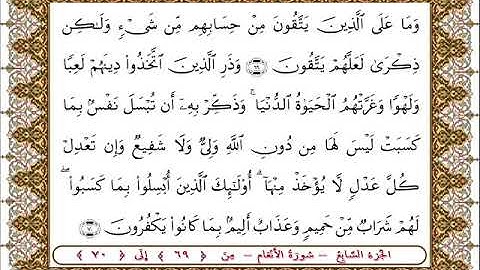 وَمَا عَلَى ٱلَّذِينَ يَتَّقُونَ مِنْ حِسَابِهِم مِّن شَىْءٍ وَلَـٰكِن
ذِكْرَىٰ لَعَلَّهُمْ يَتَّقُونَ ٦٩ وَذَرِ ٱلَّذِينَ ٱتَّخَذُوا۟ دِينَهُمْ لَعِبًا
وَلَهْوًا وَغَرَّتْهُمُ ٱلْحَيَوٰةُ ٱلدُّنْيَا ۚ وَذَكِّرْ بِهِۦٓ أَن تُبْسَلَ نَفْسٌۢ بِمَا
كَسَبَتْ لَيْسَ لَهَا مِن دُونِ ٱللَّهِ وَلِىٌّ وَلَا شَفِيعٌ وَإِن تَعْدِلْ
كُلَّ عَدْلٍ لَّا يُؤْخَذْ مِنْهَآ ۗ أُو۟لَـٰٓئِكَ ٱلَّذِينَ أُبْسِلُوا۟ بِمَا كَسَبُوا۟ ۖ
لَهُمْ شَرَابٌ مِّنْ حَمِيمٍ وَعَذَابٌ أَلِيمٌۢ بِمَا كَانُوا۟ يَكْفُرُونَ ٧٠
الجزء السابع – سورة الأنعام – من ﴿ ٦٩ ﴾ إلى ﴿ ٧٠ ﴾